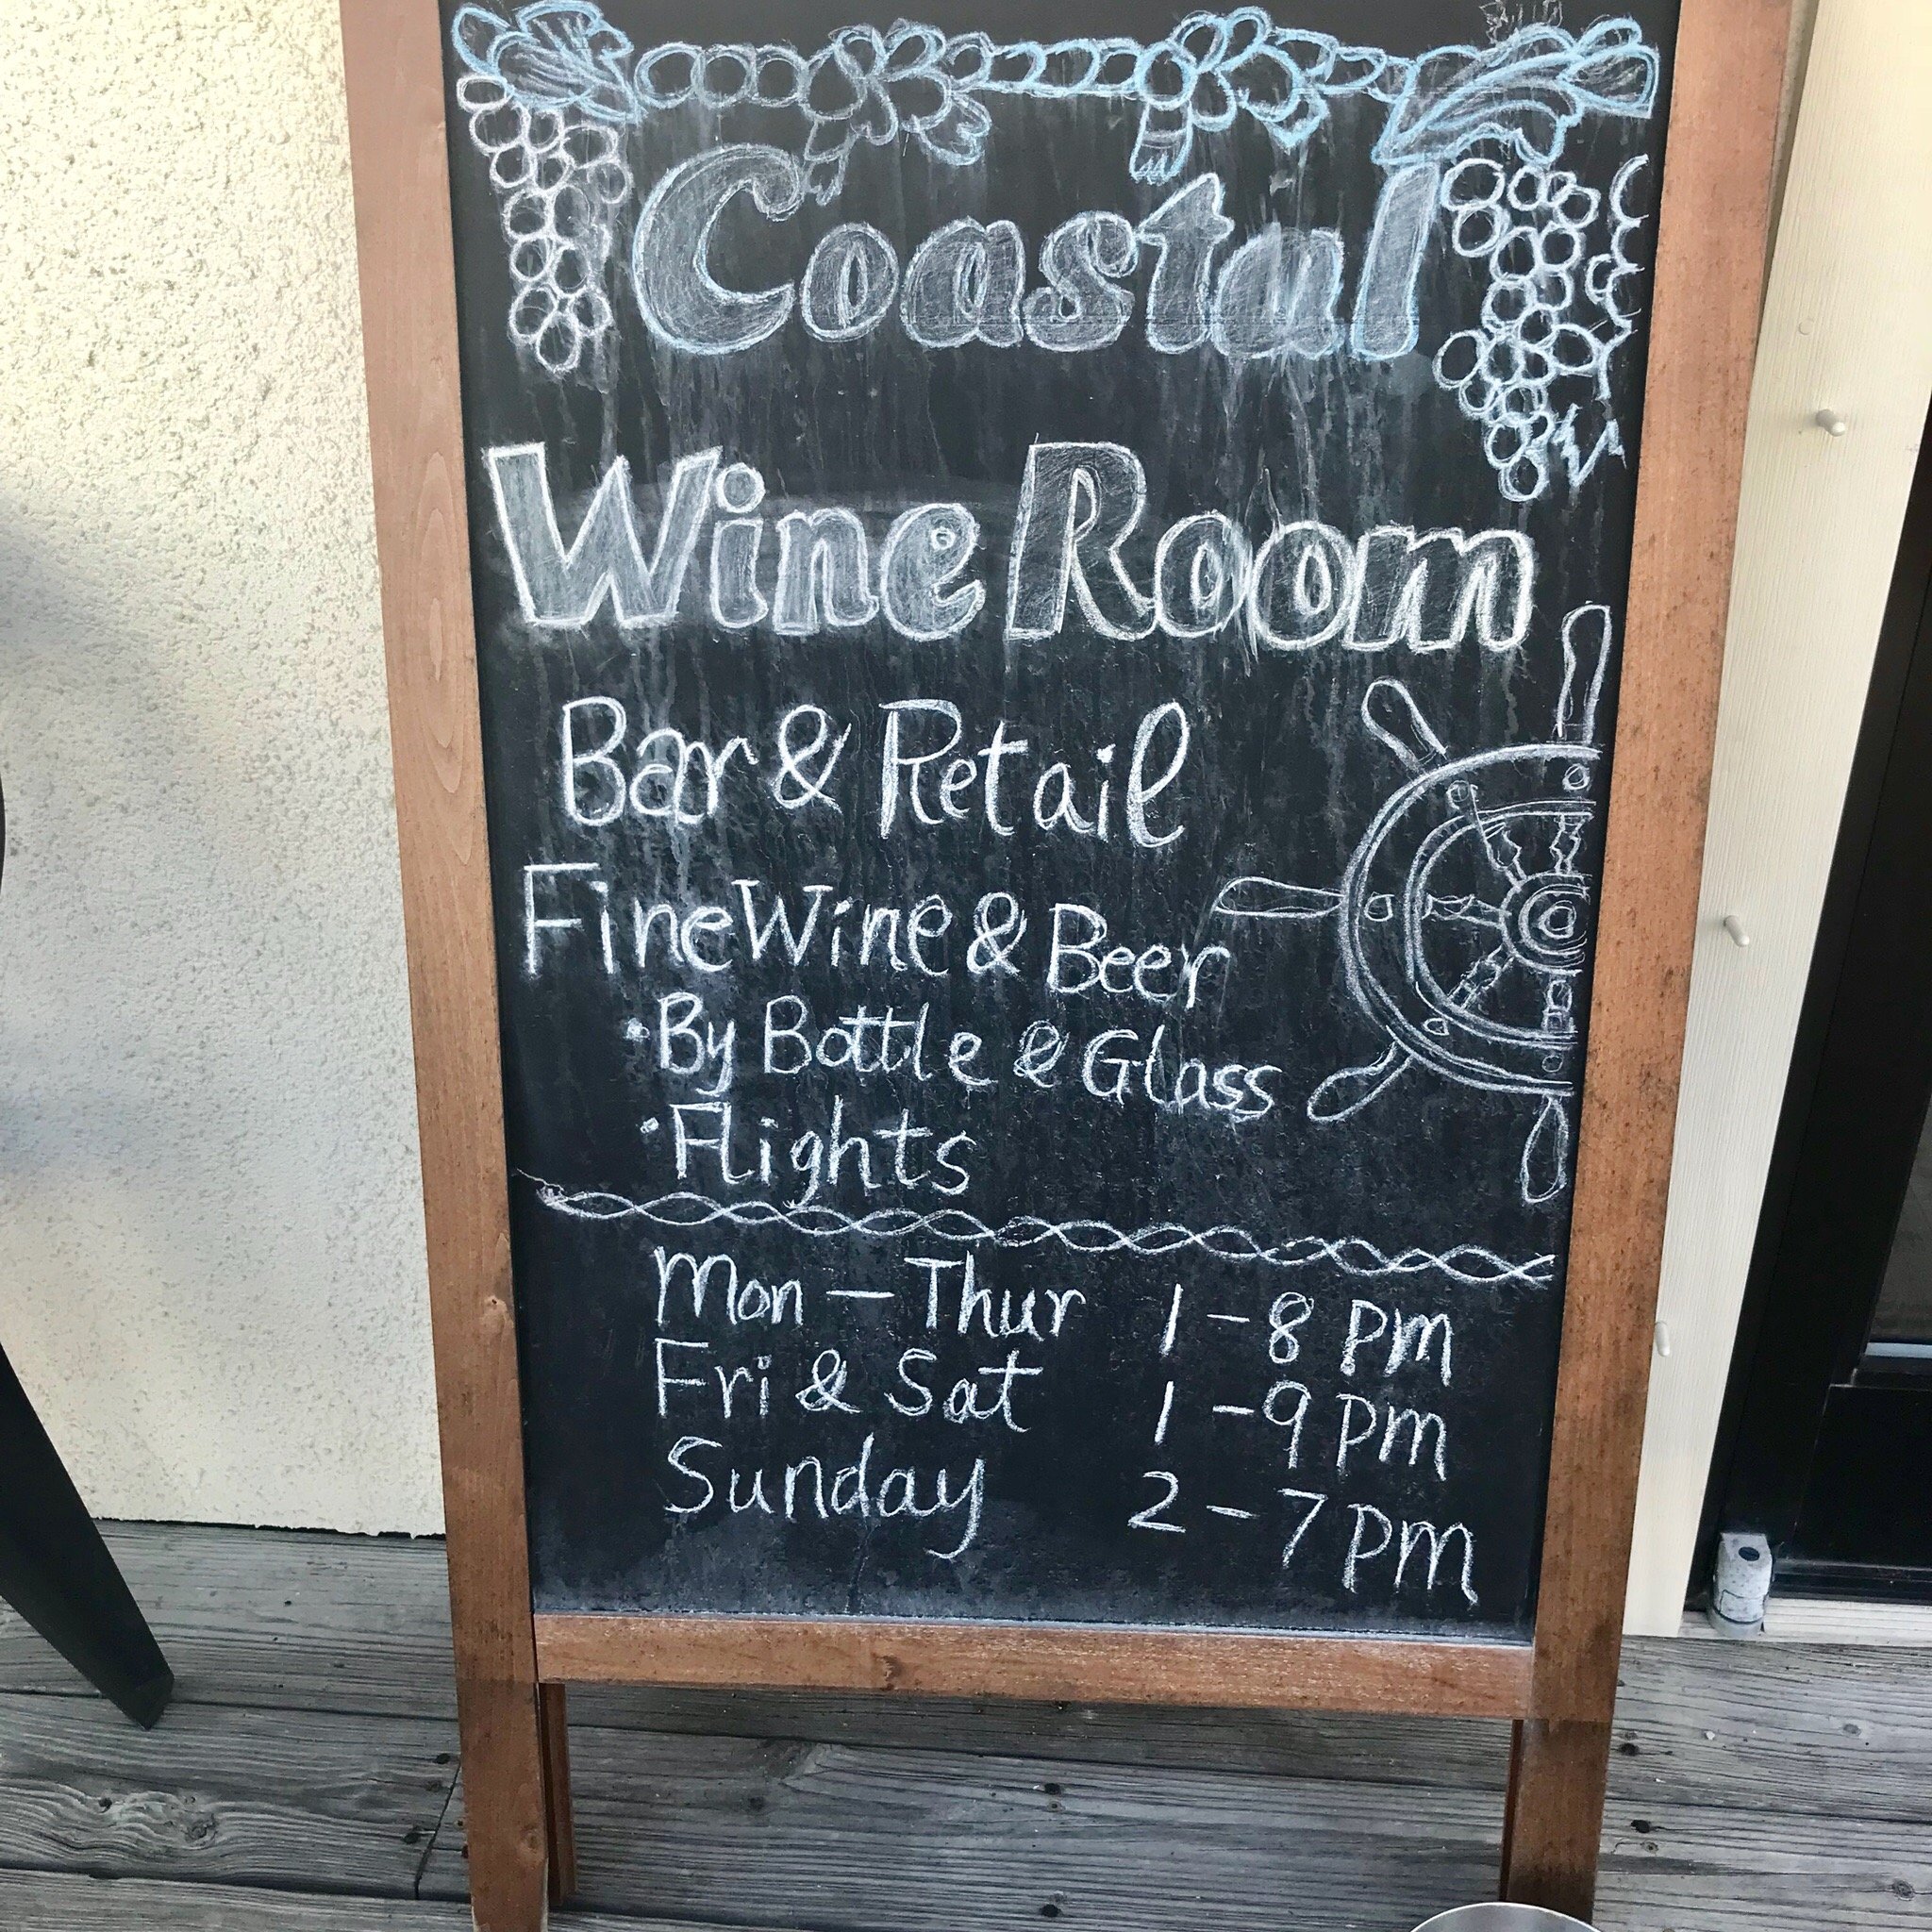 Coastal
Wine Room
Bar & Retail
Fine Wine & Beer
• By Bottle & Glass
• Flights
Mon — Thur 1 - 8 pm
Fri & Sat 1 - 9 pm
Sunday 2 - 7 pm